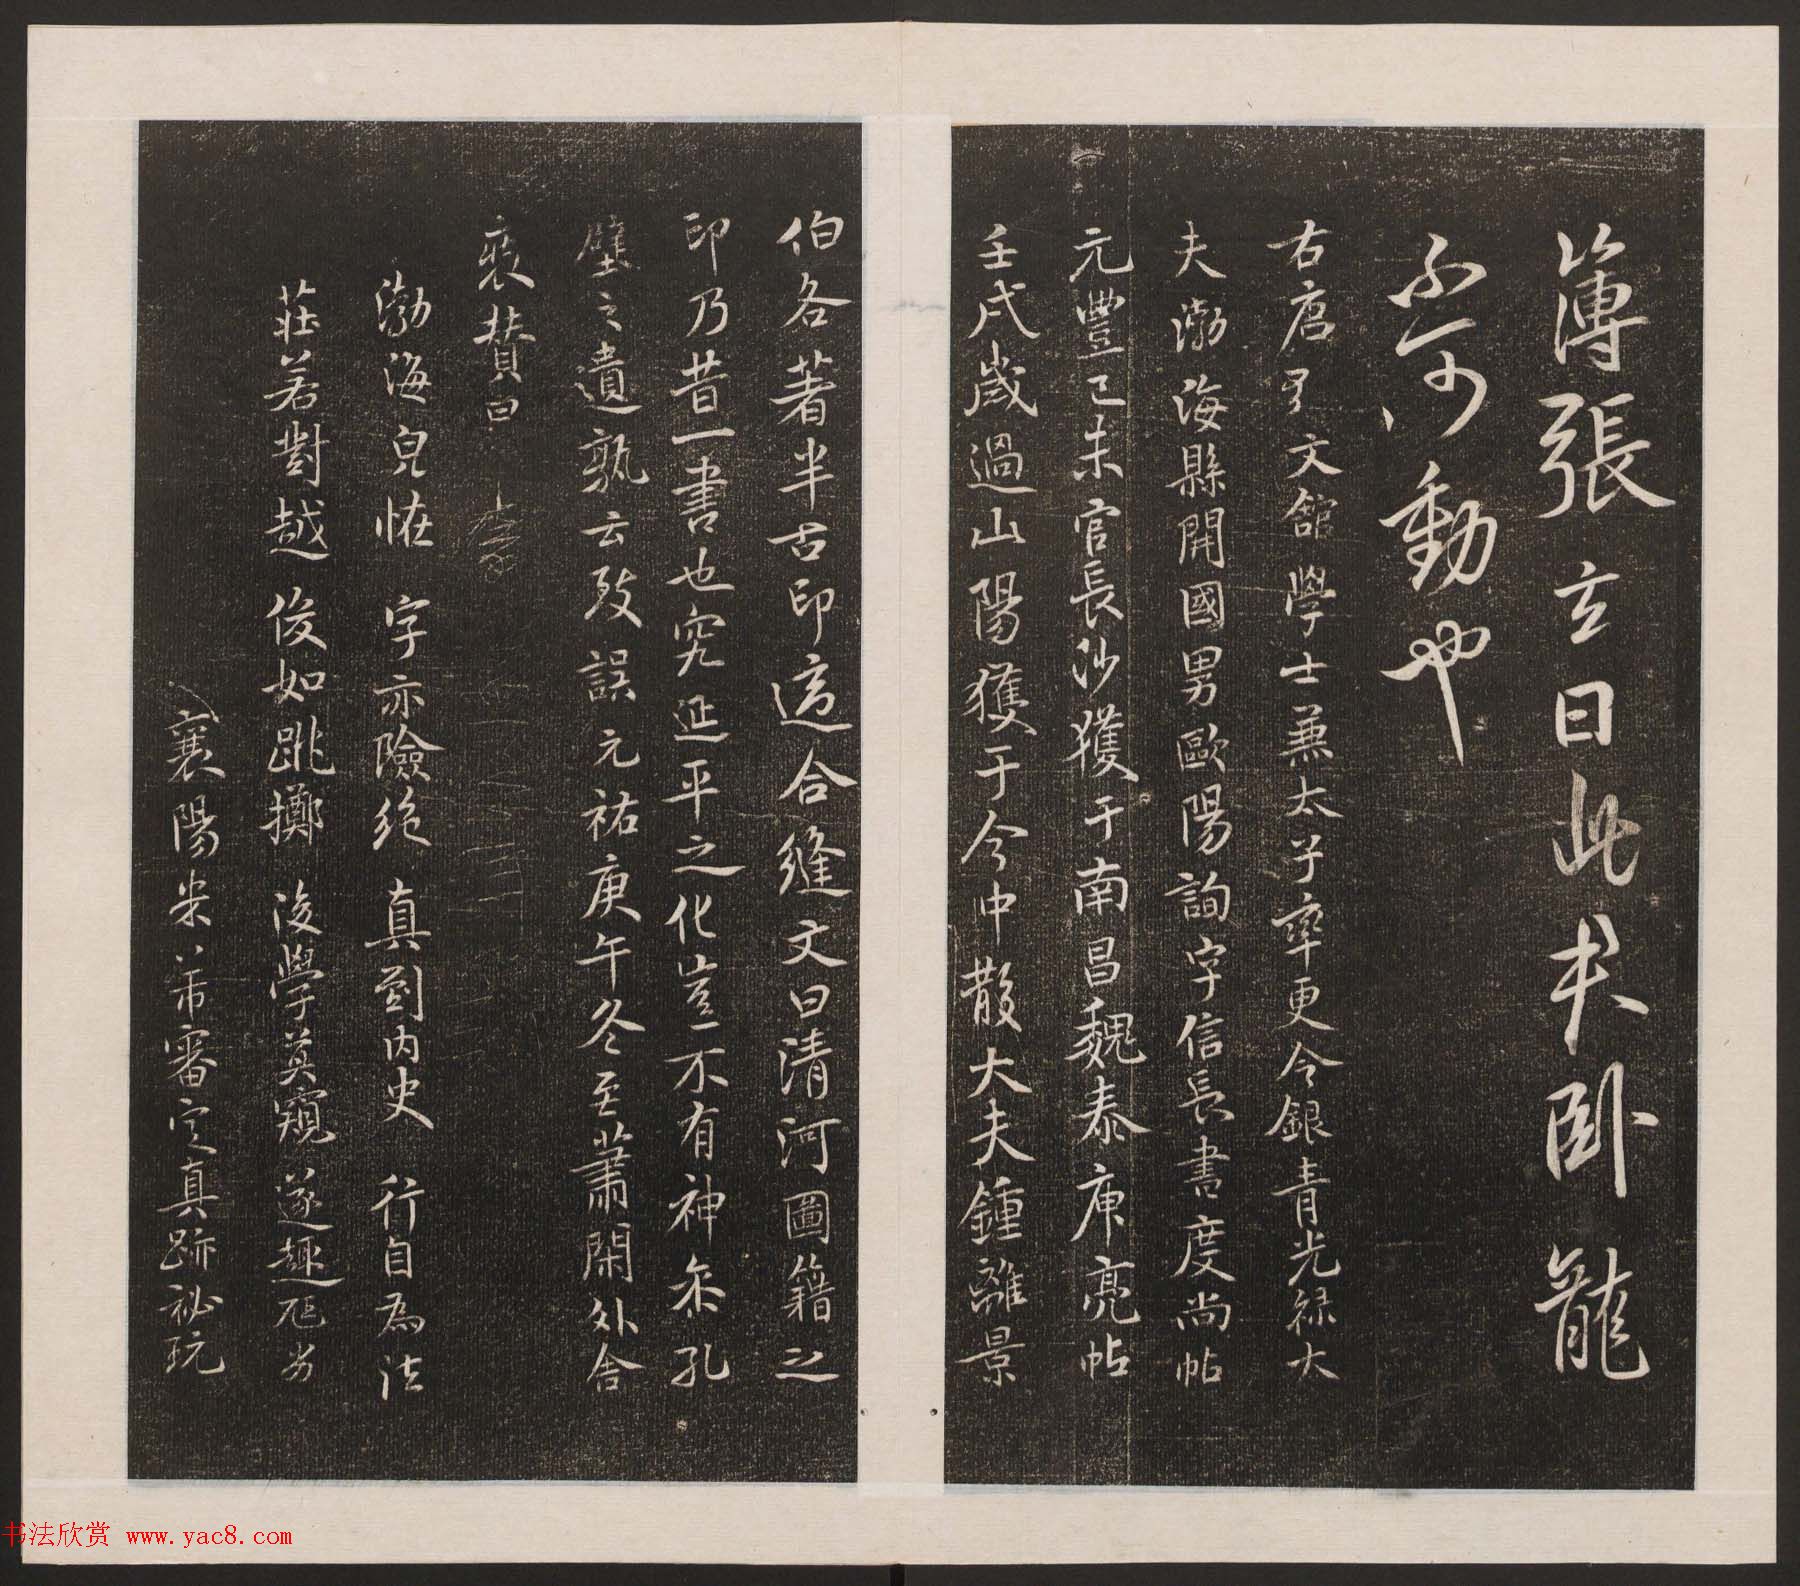 簿張玄曰此夫卧龍
不可動也
右唐弘文舘學士兼太子率更令銀青光祿大
夫渤海縣開國男歐陽詢字信長書度尚帖
元豐己未官長沙獲于南昌魏泰庾亮帖
壬戌歲過山陽獲于今中散大夫鍾離景
伯各著半古印這合縫文曰清河圖籍之
印乃昔一書也究延平之化豈不有神佘孔
壁之遺孰云致誤元祐庚午冬至蕭閑外舍
裝贊曰
渤海皃恠 字亦險絕 真到内史 行自為法
莊若對越 俊如跳擲 後學莫窺 遂趣尫劣
襄陽米芾審定真跡祕玩
书法欣赏 www.yac8.com